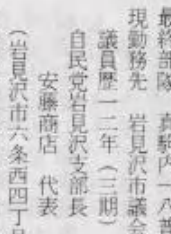 最終部隊 真駒内一八普
現勤務先 岩見沢市議会
議員歴一二年(三期)
自民党岩見沢支部長
安藤商店 代表
(岩見沢市六条西四丁目